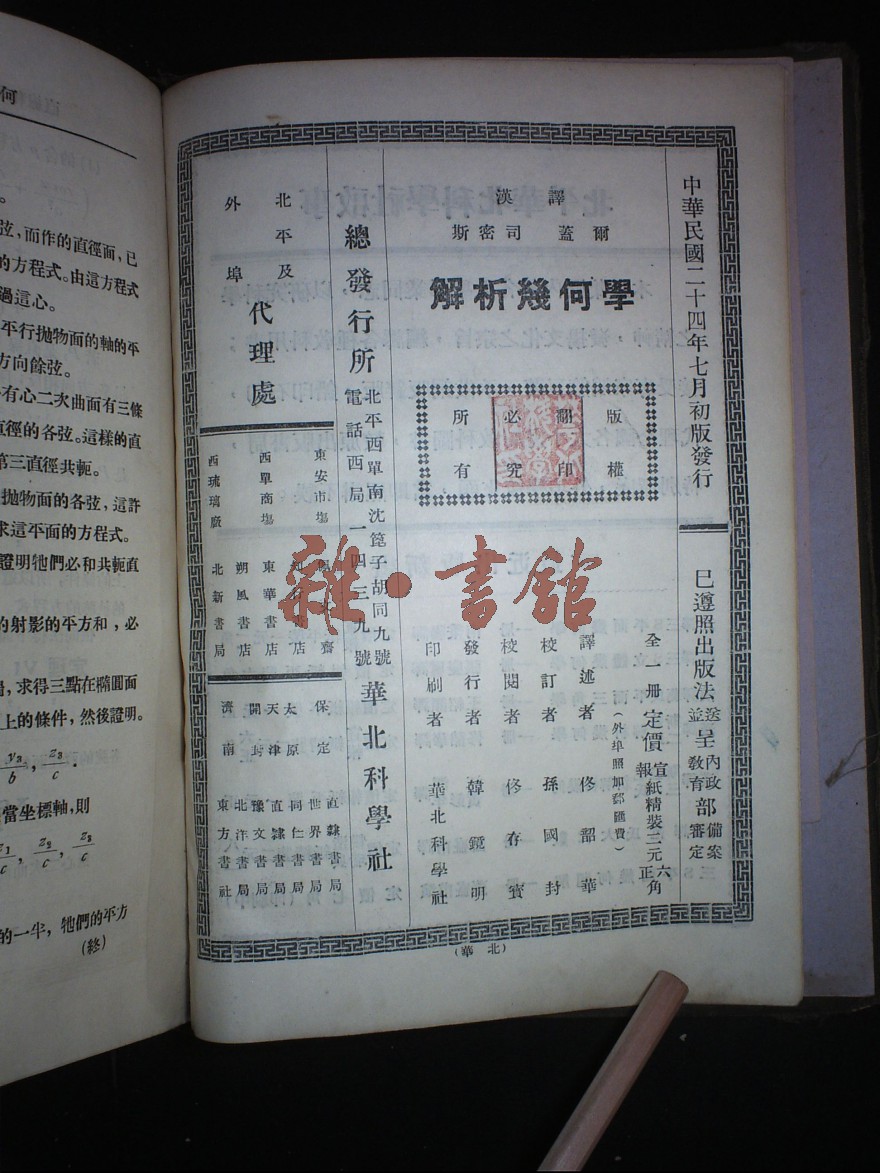 中華民國二十四年七月初版發行
已遵照出版法送呈內政部備案
並呈教育部審定
漢譯
斯密司蓋爾
解析幾何學
版權所有
翻印必究
全一冊定價宣報紙精裝三元六角正
(外埠照加郵匯費)
譯述者 佟韶華
校訂者 孫國封
校閱者 佟存賓
發行者 韓鏡明
印刷者 華北科學社
總發行所
北平西單南沈篦子胡同九號
電話西局一四三九號
華北科學社
北平及外埠代理處
東安市場
西單商場 東華書店
朔風書店
西琉璃廠 北新書局
保定 直隸書局
世界書局
太原 同仁書局
天津 直隸書局
開封 豫文書局
北洋書局
濟南 東方書社
(華北)
雜·書館
何
弦,而作的直徑面,已
的方程式。由這方程式
過這心。
平行拋物面的軸的平
方向餘弦。
有心二次曲面有三條
直徑的各弦。這樣的直
第三直徑共軛。
拋物面的各弦,這許
求這平面的方程式。
證明牠們必和共軛直
的射影的平方和,必
求得三點在橢圓面
上的條件,然後證明。
y₃/b, z₃/c.
當坐標軸,則
z₁/c, z₂/c, z₃/c
的一半,牠們的平方
(終)